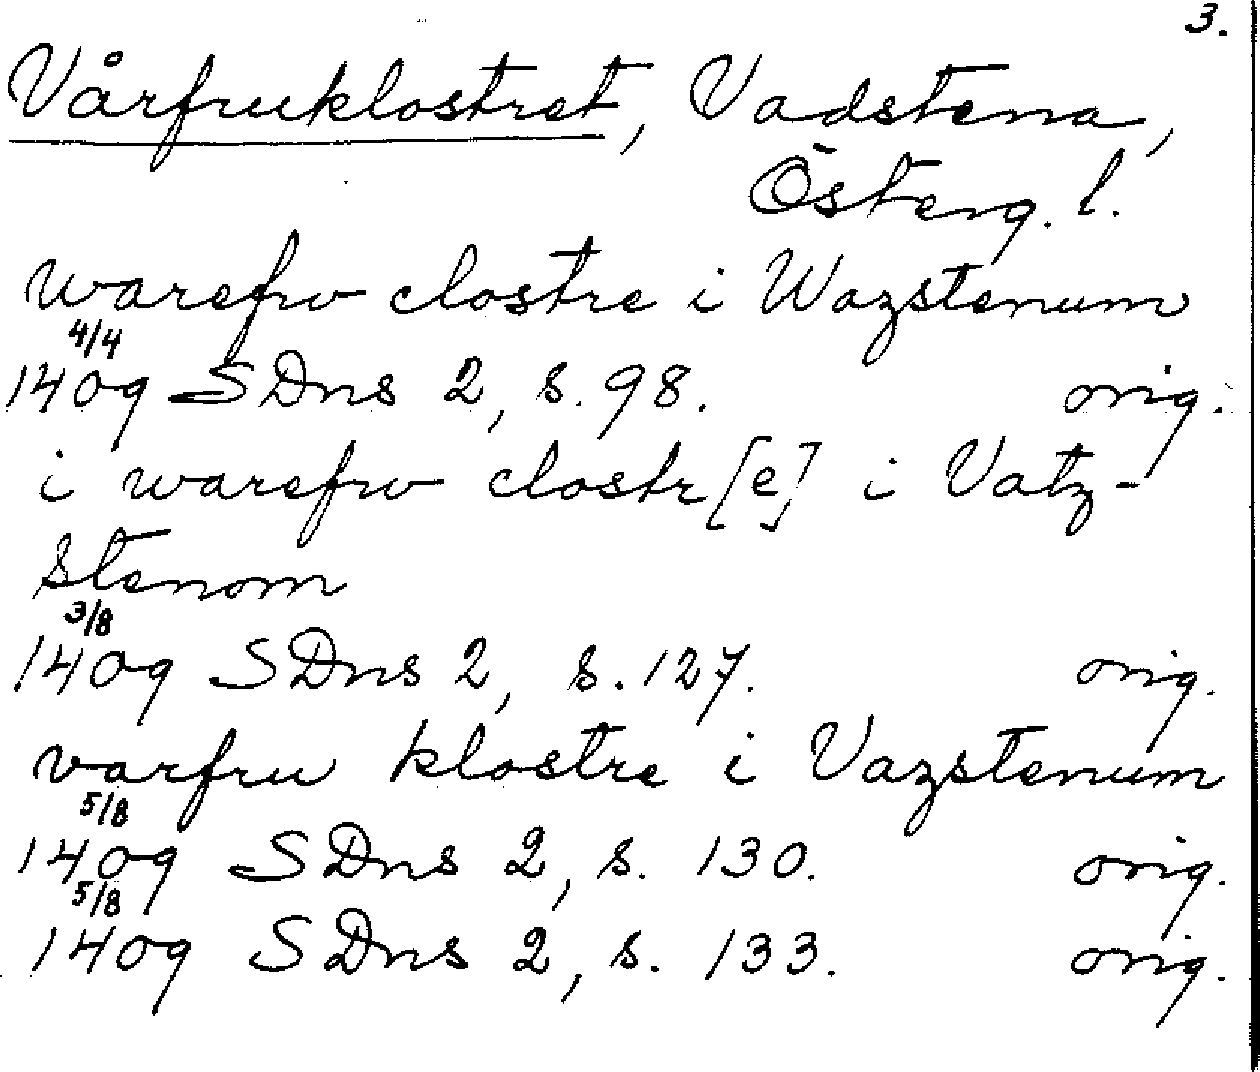 3.
Vårfruklostret, Vadstena,
Österg. l.
warefrw clostre i Wazstenum
4/4
1409 SDns 2, s. 98. orig.
i warefrw clostr[e] i Vatz-
stenom
3/8
1409 SDns 2, s. 127. orig.
varfru klostre i Vazstenum
5/8
1409 SDns 2, s. 130. orig.
5/8
1409 SDns 2, s. 133. orig.